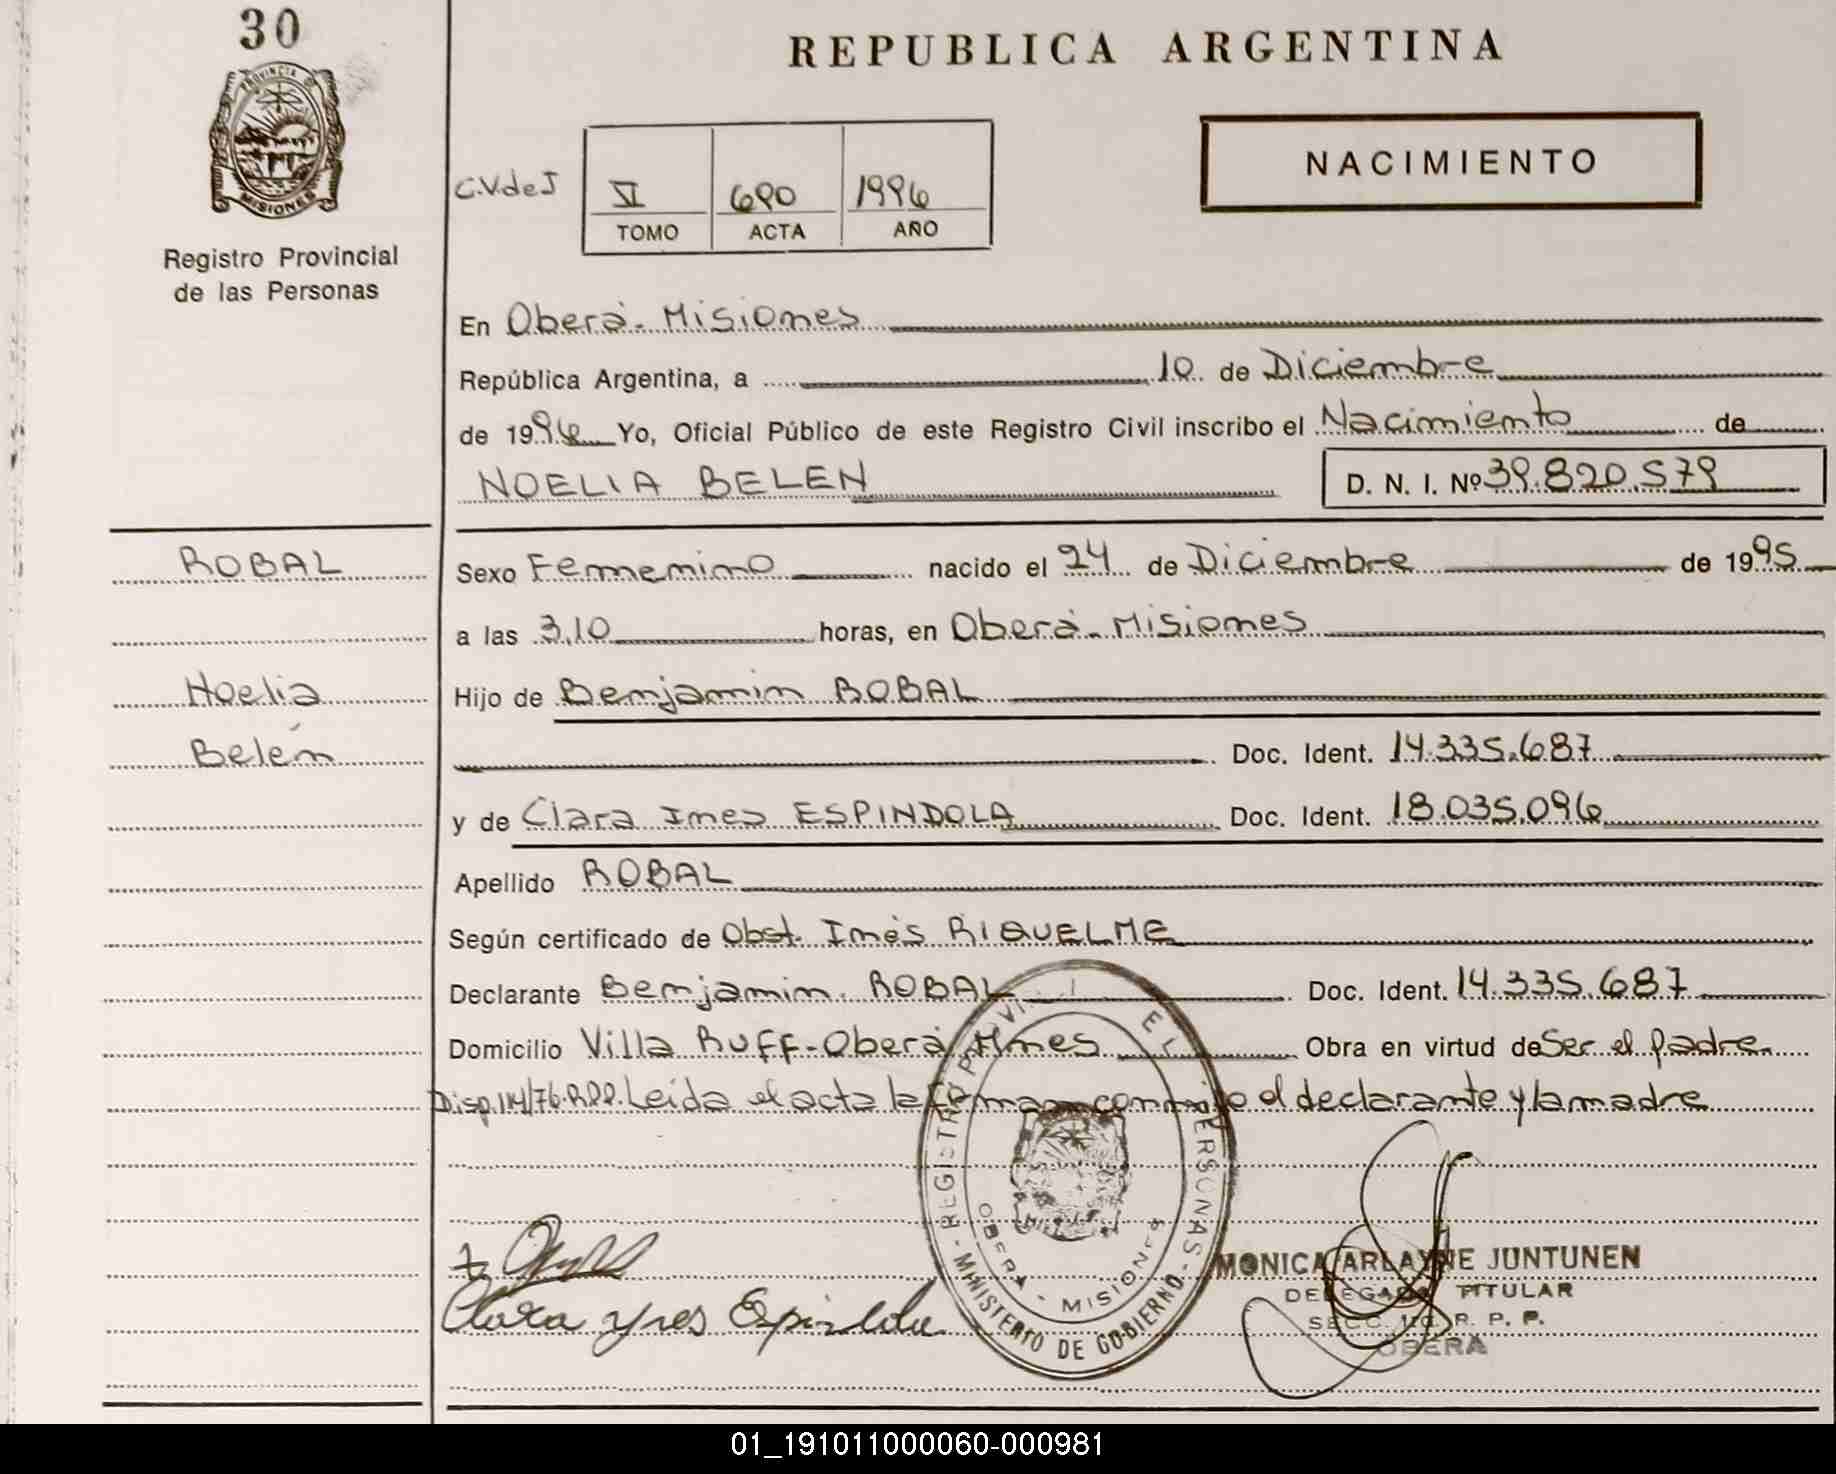 30
REPUBLICA ARGENTINA
PROVINCIA D
MISIONES
Registro Provincial
de las Personas
NACIMIENTO
C.V.deJ
VI 690 1996
TOMO ACTA AÑO
En Oberá - Misiones
República Argentina, a 10 de Diciembre
de 1996 Yo, Oficial Público de este Registro Civil inscribo el Nacimiento de
NOELIA BELEN D. N. I. Nº 39.820.579
ROBAL
Sexo Femenino nacido el 24 de Diciembre de 1995
a las 3,10 horas, en Oberá - Misiones
Noelia
Hijo de Benjamin ROBAL
Belén
Doc. Ident. 14.335.687
y de Clara Ines ESPINDOLA Doc. Ident. 18.035.096
Apellido ROBAL
Según certificado de Obst. Inés RIQUELME
Declarante Benjamin ROBAL Doc. Ident. 14.335.687
Domicilio Villa Ruff - Oberá Mnes Obra en virtud de Ser el padre
Disp.114/76.R.P.P. Leída el acta la firman conmigo el declarante y la madre
OBERA - MISIONES
MINISTERIO DE GOBIERNO
Clara Ynes Espindola
MONICA ARLAYNE JUNTUNEN
DELEGADA TITULAR
R. P. P.
OBERA
01_191011000060-000981